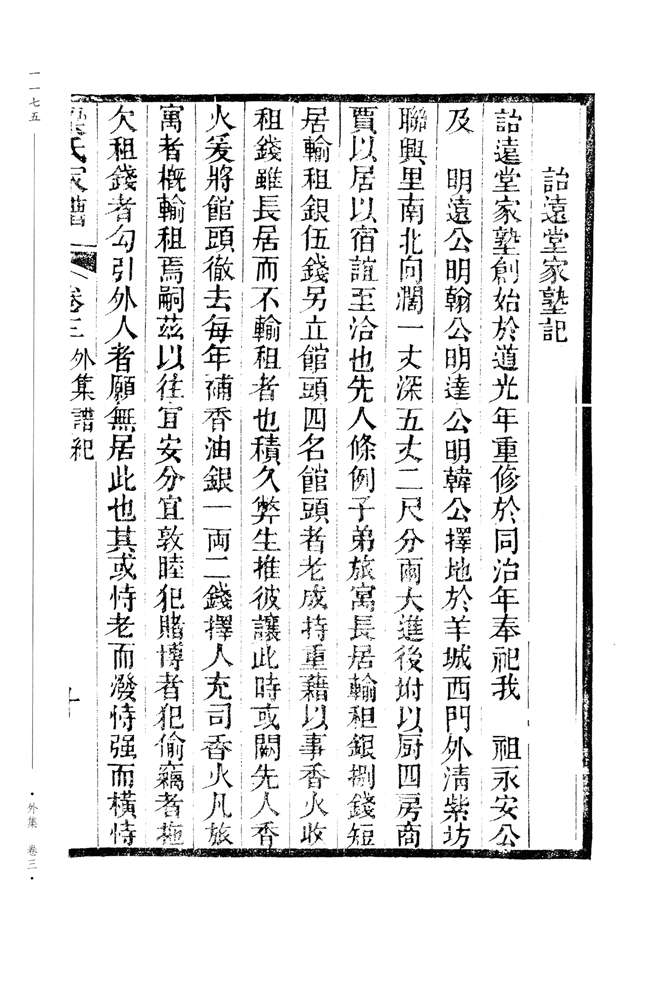 詒遠堂家塾記
詒遠堂家塾創始於道光年重修於同治年奉祀我　祖永安公
及　明遠公明翰公明達公明韓公擇地於羊城西門外清紫坊
聯興里南北向濶一丈深五丈二尺分兩大進後坿以厨四房商
賈以居以宿誼至洽也先人條例子弟旅寓長居輸租銀捌錢短
居輸租銀伍錢另立館頭四名館頭者老成持重藉以事香火收
租錢雖長居而不輸租者也積久弊生推彼讓此時或闕先人香
火爰將館頭徹去每年補香油銀一両二錢擇人充司香火凡旅
寓者概輸租焉嗣茲以往宜安分宜敦睦犯賭博者犯偷竊者拖
欠租錢者勾引外人者願無居此也其或恃老而潑恃强而橫恃
氏家譜　卷三　外集譜紀　十
一一七五
·外集　卷三·